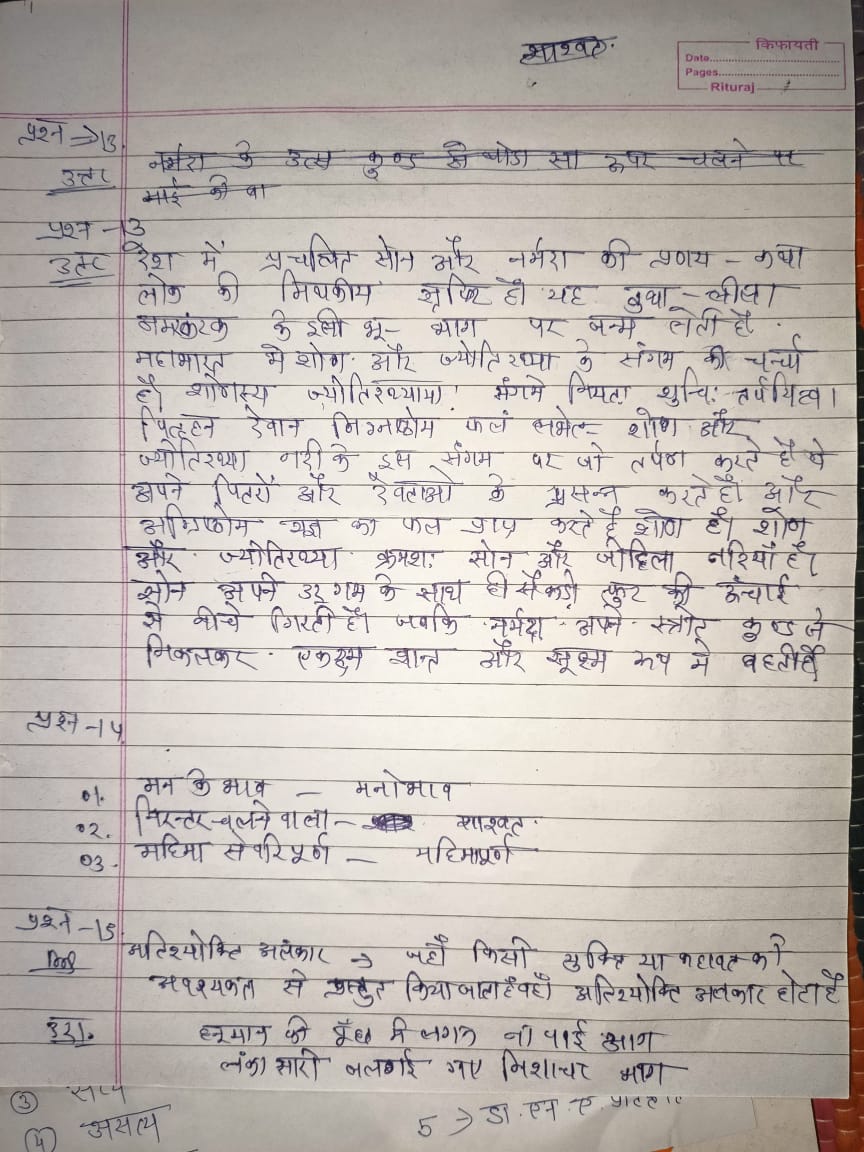 शाश्वत.
किफायती
Date
Pages
Rituraj
प्रश्न ⇒ 13
नर्मदा के उत्स कुण्ड से थोडा सा ऊपर चलने पर
उत्तर
माई की बा
प्रश्न - 13
उत्तर देश में प्रचलित सोन और नर्मदा की प्रणय - कथा
लोक की मिथकीय है। यह
अमरकंटक के इसी भू - भाग पर जन्म लेती है.
महाभारत मे शोण और ज्योतिरथ्या के संगम की चर्चा
है। शोणस्य ज्योतिरथ्याया संगमे नियता शुचि: तर्पयित्वा।
पितृहन देवान फलं लभेत शोण और
ज्योतिरथ्या नदी के इस संगम पर जो तर्पण करते है वे
अपने पितरों और देवताओ के प्रसन्न करते है। और
यज्ञ का फल प्राप्त करते है शोण है। शोण
और ज्योतिरथ्या क्रमश: सोन और जोहिला नदियाँ है।
सोन अपने उद्गम के साथ ही सैकडो फुट की ऊंचाई
से नीचे गिरती है। जबकि नर्मदा अपने स्त्रोत कुण्ड से
निकलकर एकदम शान्त और सूक्ष्म रूप मे बहती है
प्रश्न - 14
01. मन के भाव - मनोभाव
02. निरन्तर चलने वाला - शाश्वत.
03. महिमा से परिपूर्ण - महिमापूर्ण
प्रश्न - 15
अतिश्योक्ति अलंकार → जहाँ किसी युक्ति या कहावत को
अवश्यकता से प्रस्तुत किया जाता है वहाँ अतिश्योक्ति अलंकार होता है
उदा. हनूमान की पूँछ मे लगन ना पाई आग
लंका सारी जलगई गए निशाचर भाग
③ सत्य
④ असत्य
5 → डा. एन. ए.